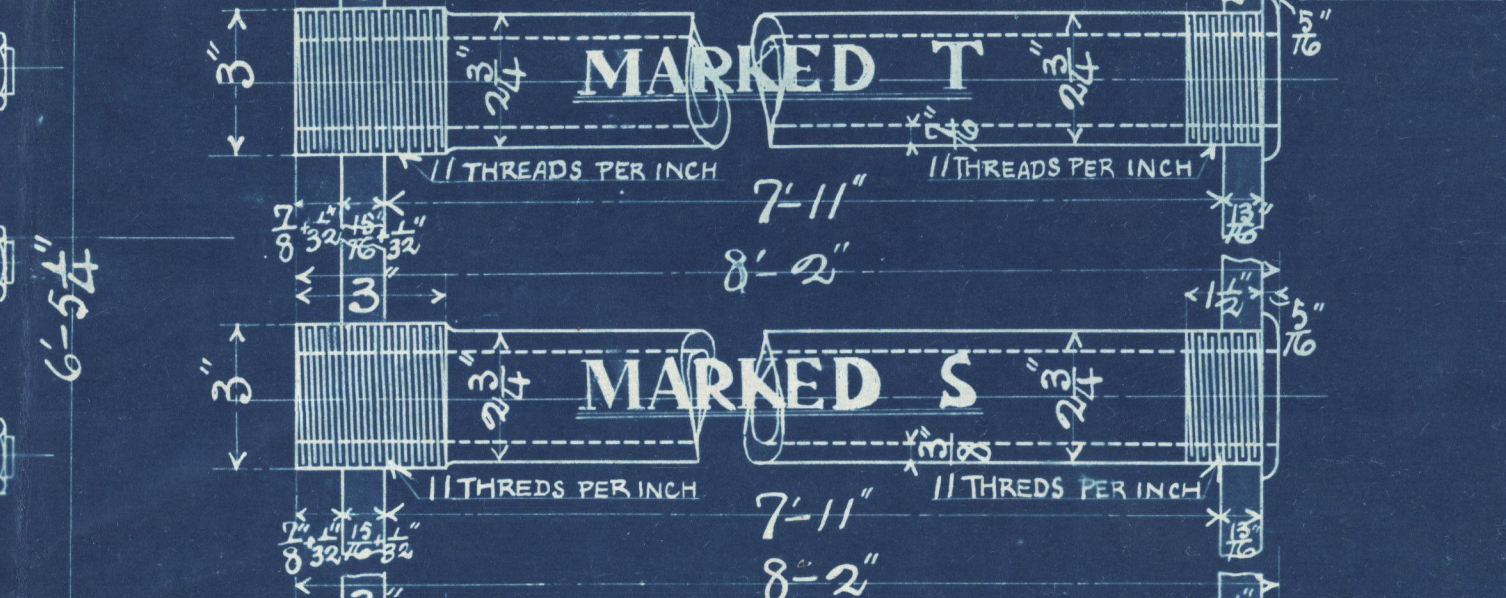 5/16"
3" 2 3/4" MARKED T 2 3/4" 7/16"
11 THREADS PER INCH 11 THREADS PER INCH
7'-11"
7/8 + 1/32" 15/16" + 1/32" 13/16"
8'-2"
6'-5 1/4"
3" 1 1/2" 5/16"
3" 2 3/4" MARKED S 2 3/4" 3/8"
11 THREDS PER INCH 11 THREDS PER INCH
7'-11"
7/8" + 1/32" 15/16 + 1/32" 13/16"
8'-2"